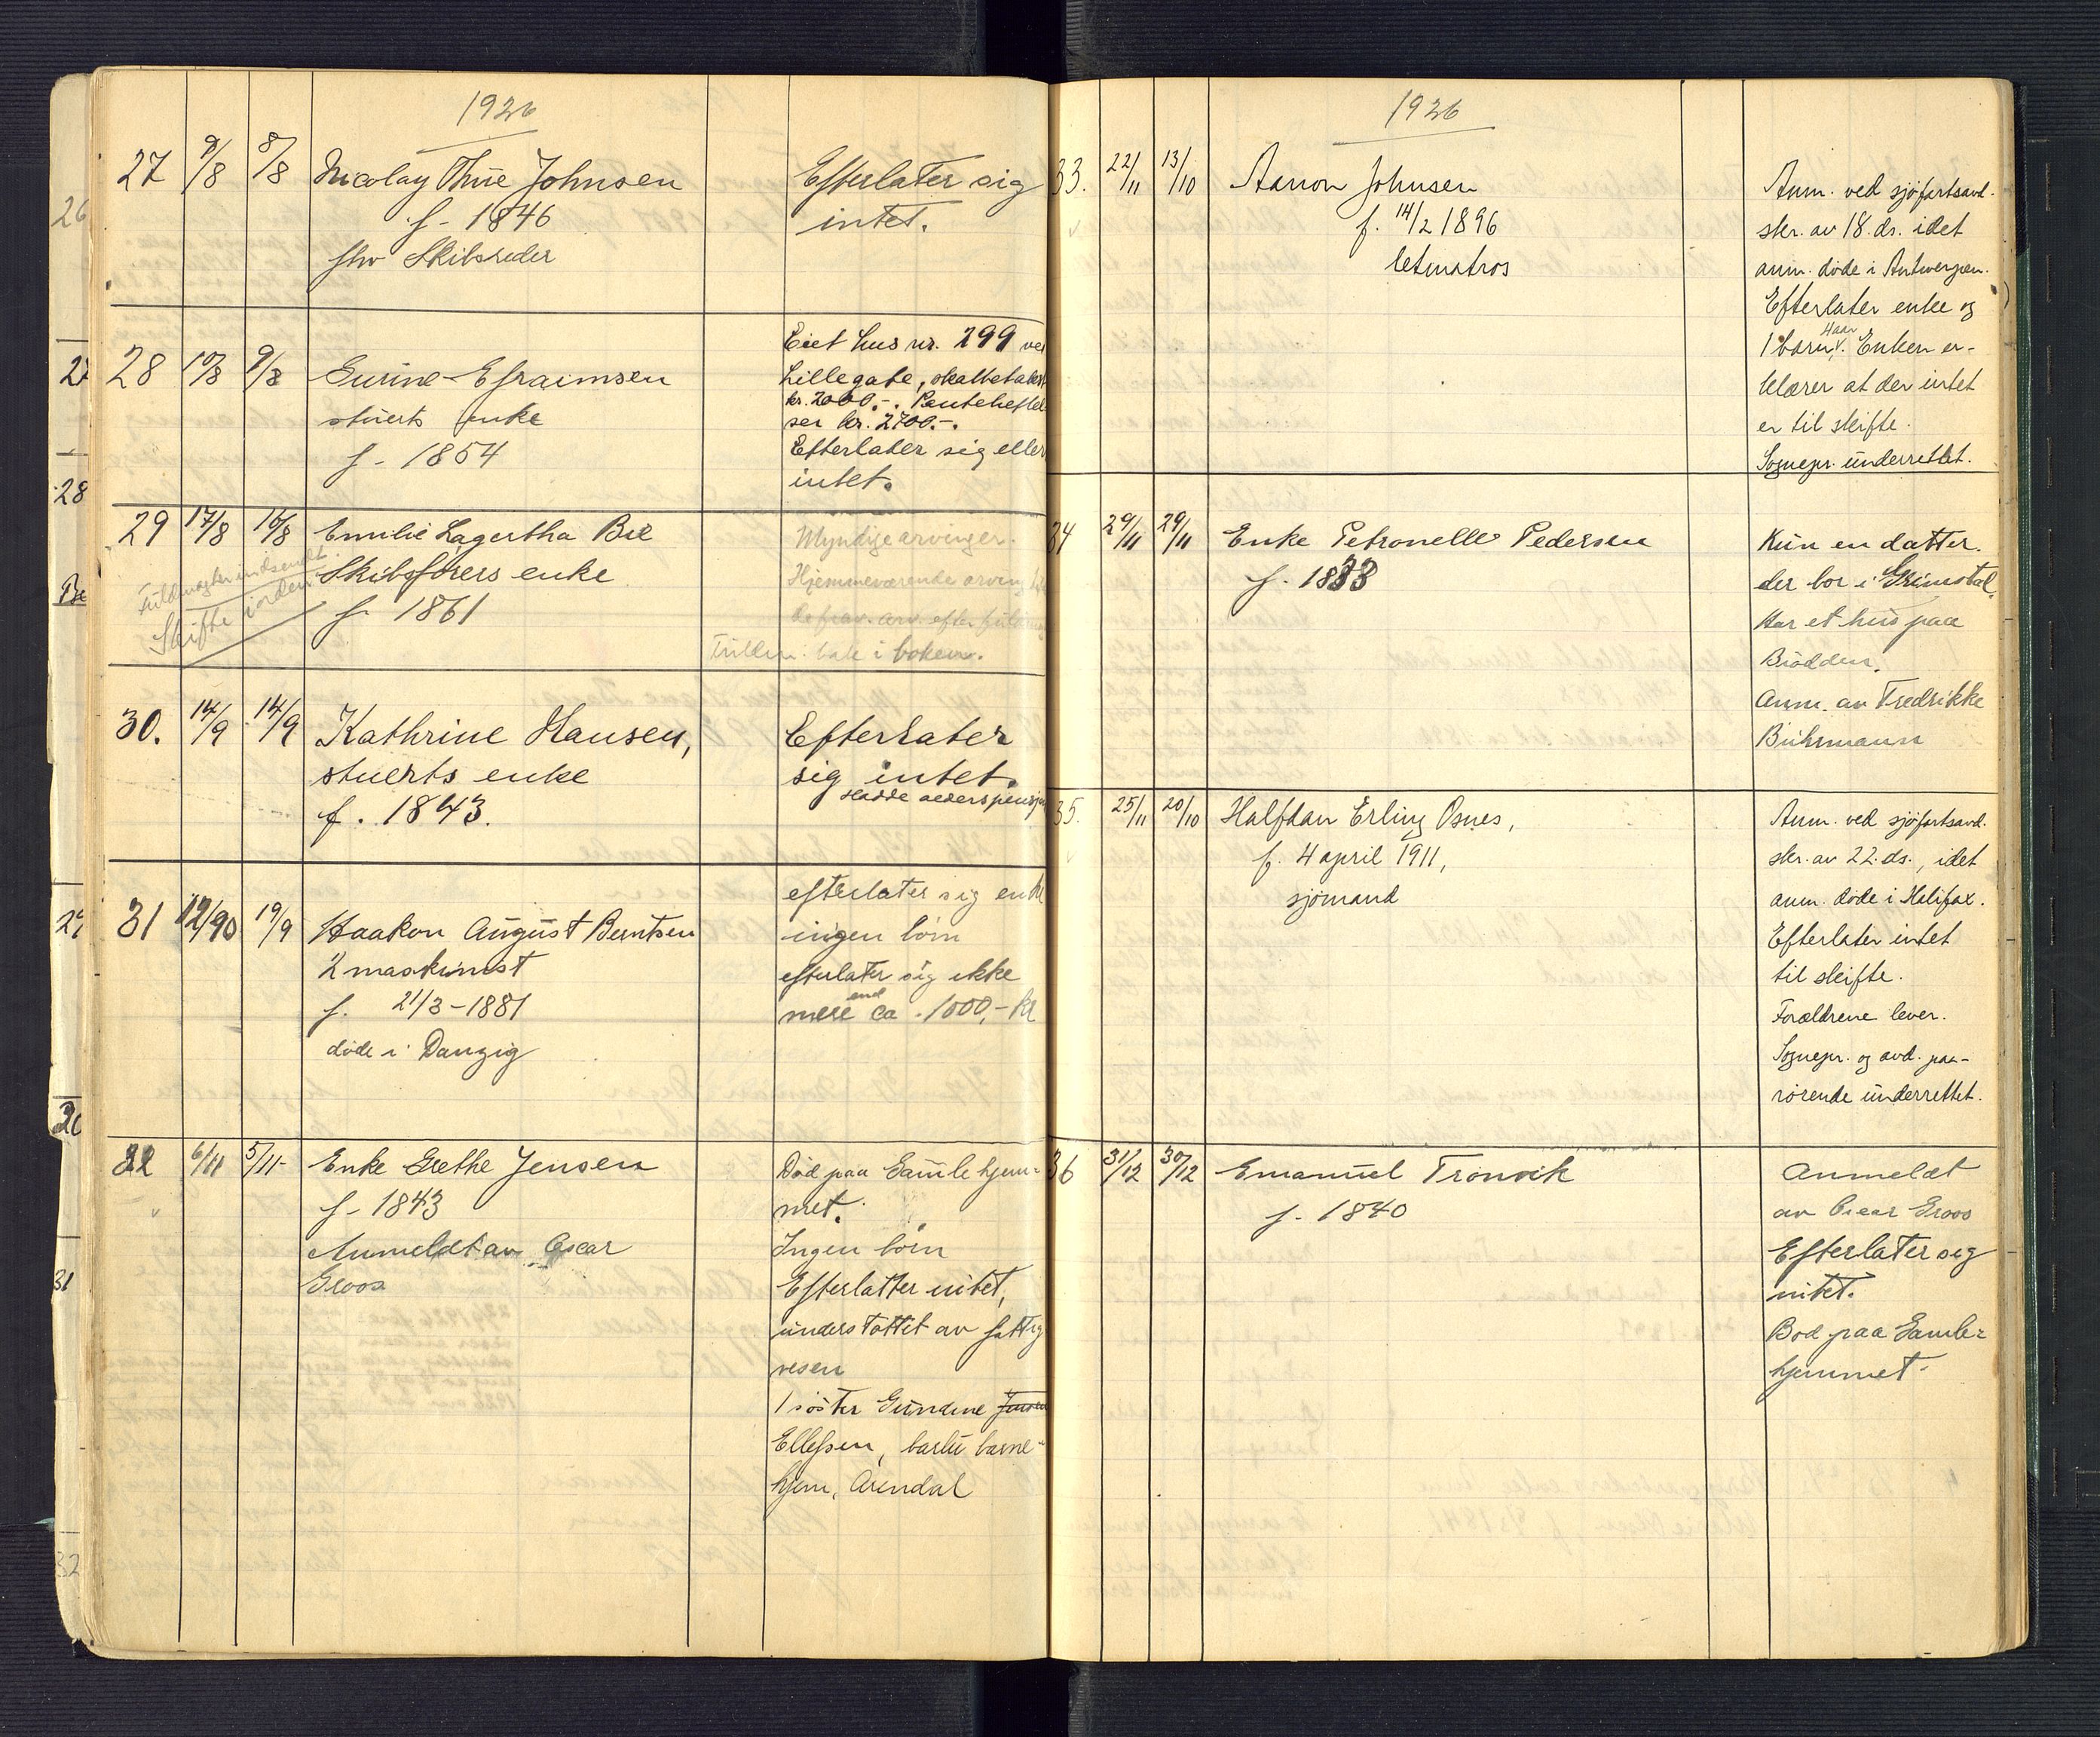 1926
27 9/8 8/8 Nicolay Thue Johnsen Efterlater sig
f. 1846 intet.
fhv Skibsreder
28 10/8 9/8 Gurine Efraimsen
stuerts enke
f. 1854
Eiet hus nr. 299 ved
Lillegate, skattetakst
kr. 2000.-. Panteheftel
ser kr. 2700.-.
Efterlater sig ellers
intet.
29 17/8 16/8 Emilie Lagertha Bie
Skibsførers enke
f. 1861
Fuldmagter indsendt.
Skifte i orden
Myndige arvinger.
Hjemmeværende arving
bak i boken.
30. 14/9 14/9 Kathrine Hansen,
stuerts enke
f. 1843.
Efterlater
sig intet.
Hadde alderspensjon
31 19/9 Haakon August Berntsen
2 maskinist
f. 21/3-1881
døde i Danzig
efterlater sig enke
ingen börn
efterlater sig ikke
mere end ca. 1000,- kr
32 6/11 5/11 Enke Grethe Jensen
f. 1843
Anmeldt av Oscar
Groos
Död paa Gamlehjem-
met.
Ingen börn
Efterlatter intet,
understöttet av fattig
vesen
1 söster Gundine Jensen
Ellefsen, barbu barne-
hjem, Arendal
1926
33. 22/11 13/10 Aanon Johnsen
f. 14/2 1896
letmatros
Anm. ved sjöfartsavd.
skr. av 18. ds. idet
anm. döde i Antwerpen.
Efterlater enke og
1 barn, 4 aar. Enken er-
klærer at der intet
er til skifte.
Sognepr. underrettet.
34 29/11 29/11 Enke Petronelle Pedersen
f. 1838
Kun en datter.
der bor i Grimstad.
Har et hus paa
Brodden.
Anm. av Fredrikke
Bührmann
35. 25/11 20/10 Halfdan Erling Osnes,
f. 4 april 1911,
sjömand
Anm. ved sjöfartsavd.
skr. av 22. ds., idet
anm. döde i Halifax.
Efterlater intet
til skifte.
Forældrene lever.
Sognepr. og avd. paa-
rörende underrettet.
36 31/12 30/12 Emanuel Trönvik
f. 1840
Anmeldt
av Oscar Groos
Efterlater sig
intet.
Bod paa Gamle-
hjemmet.